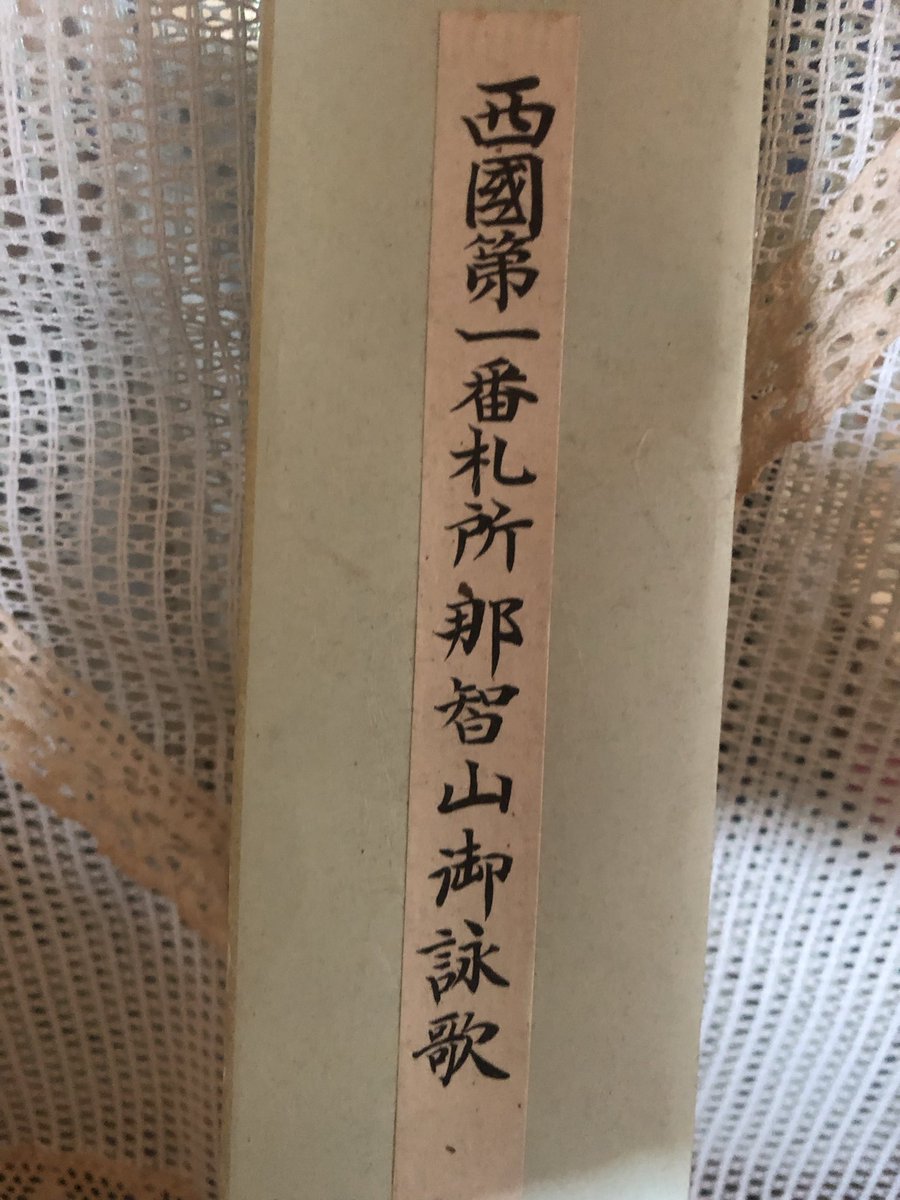 西國第一番札所那智山御詠歌